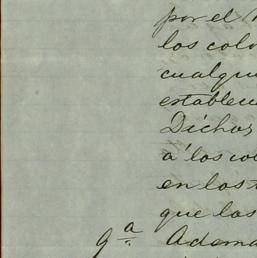 por el
los colo
cualqui
establec
Dichos
á los co
en los
que las
9ª Adema